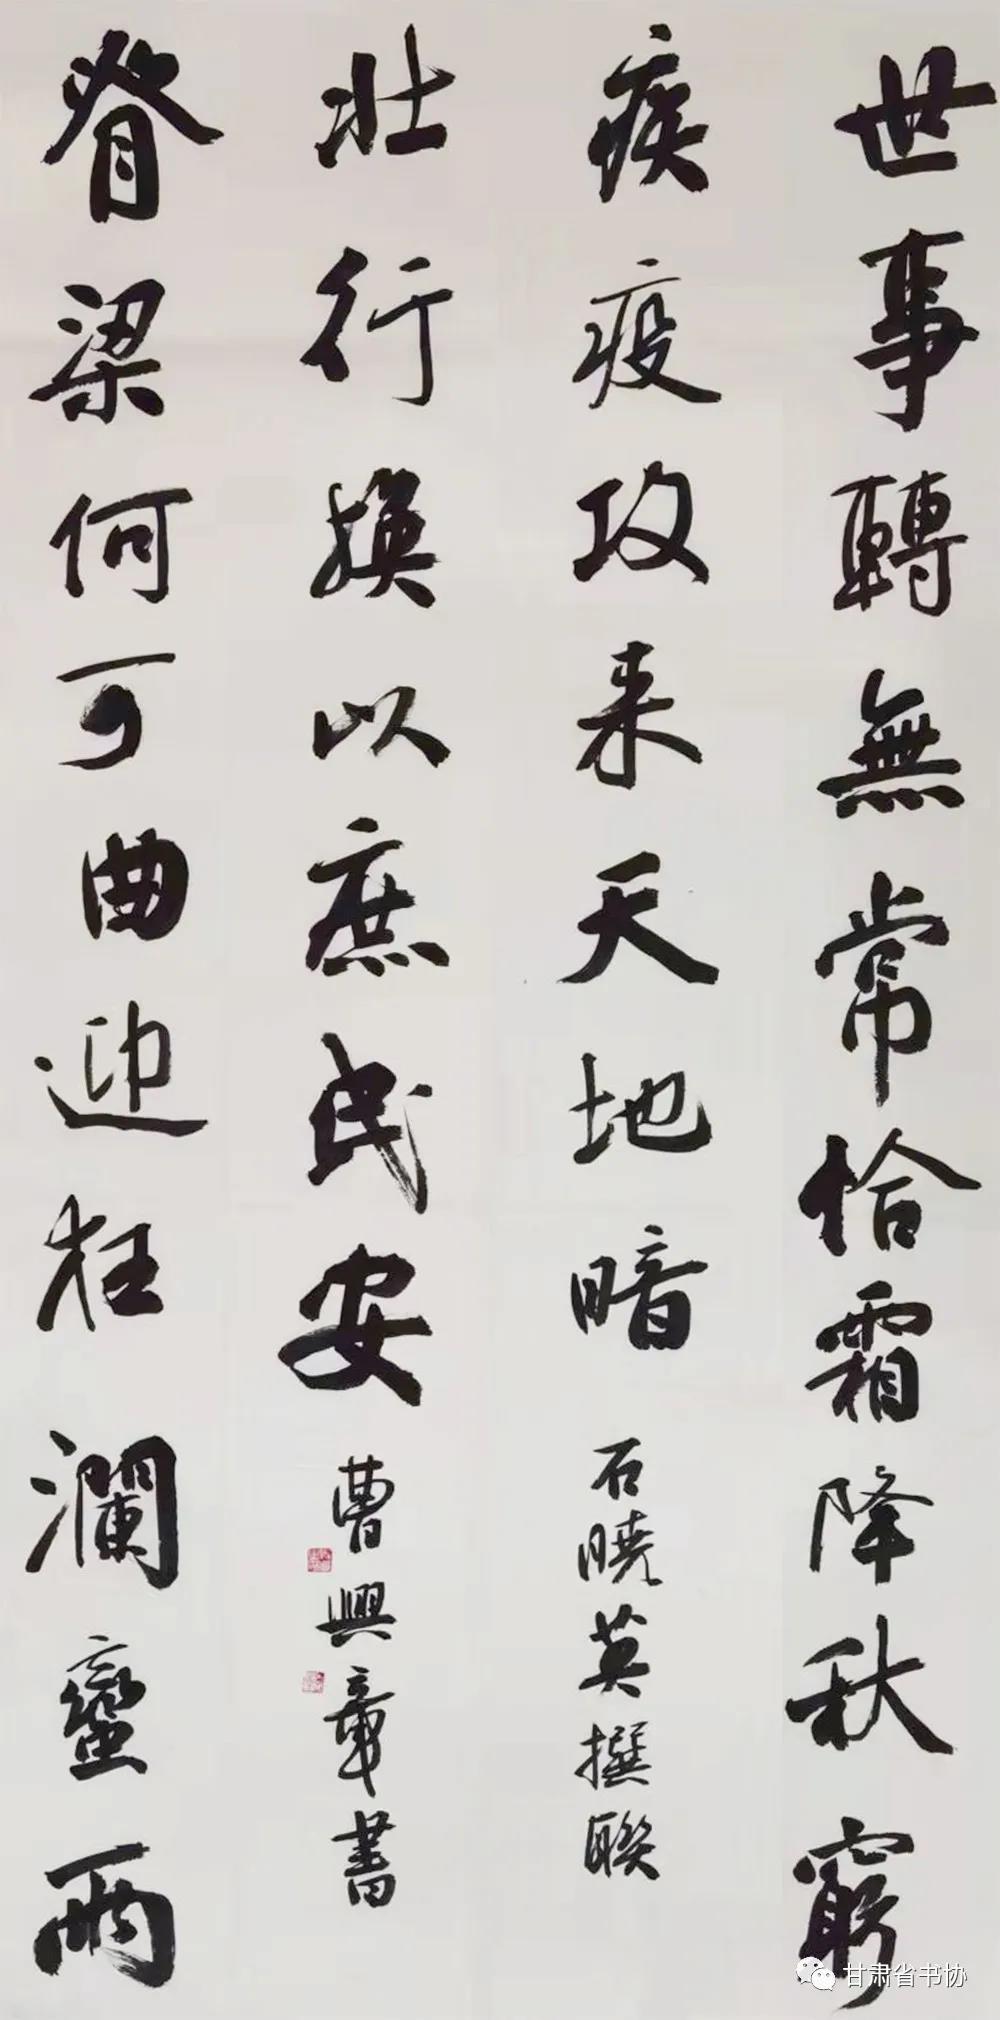 世事轉無常恰霜降秋窮
疾疫攻来天地暗
石曉英撰聯
脊梁何可曲迎狂瀾蠻雨
壮行換以庶民安
曹興章書
甘肃省书协